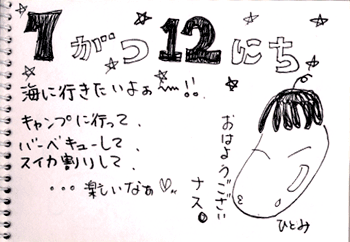 7がつ12にち
海に行きたいよぉ〜!!
キャンプに行って、
バーベキューして、
スイカ割りして、
・・・楽しいなぁ♡。
おはようござい
ナス。
ひとみ